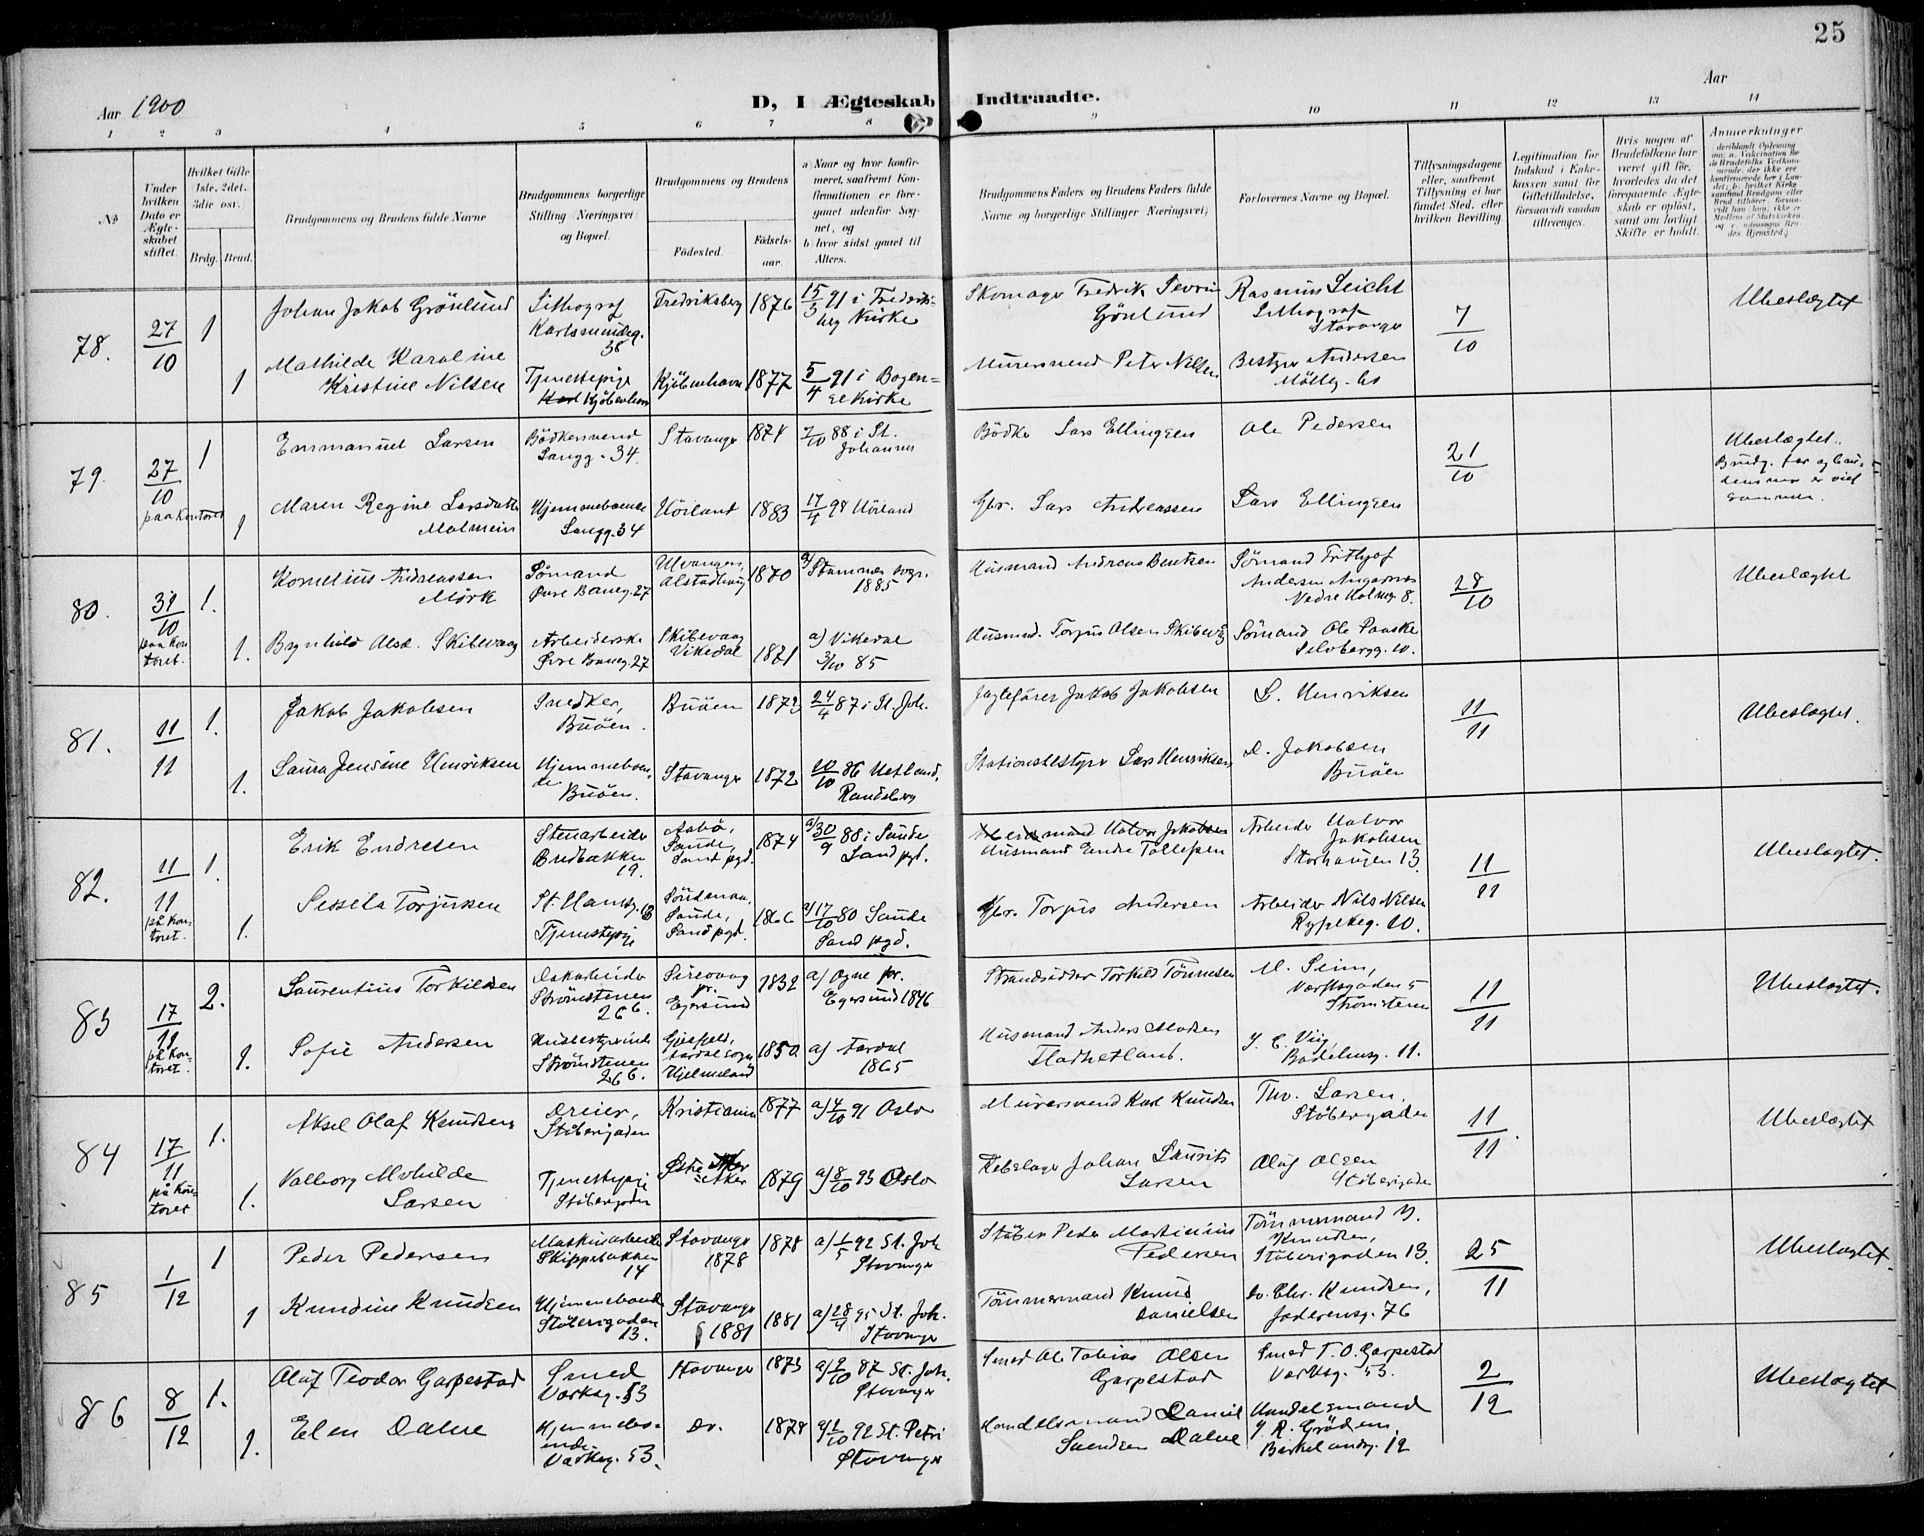 25
Aar 1900
D, I Ægteskab Indtraadte.
Aar
1 2 3 4 5 6 7 8 9 10 11 12 13 14
№
Under hvilken Dato er Ægteskabet stiftet.
Hvilket Gifte 1ste, 2det, 3die osv.
Brdg. Brud.
Brudgommens og Brudens fulde Navne
Brudgommens borgerlige Stilling (Næringsvei) og Bopæl.
Brudgommens og Brudens
Fødested.
Fødsels-aar.
a) Naar og hvor konfirmeret, saafremt Konfirmationen er foregaaet udenfor Sognet, og
b) hvor sidst gaaet til Alters.
Brudgommens Faders og Brudens Faders fulde Navne og borgerlige Stillinger (Næringsvei)
Forlovernes Navne og Bopæl.
Tillysningsdagene eller, saafremt Tillysning ei har fundet Sted, efter hvilken Bevilling.
Legitimation for Indskud i Enkekassen samt for Giftetilladelse, forsaavidt saadan tiltrænges.
Hvis nogen af Brudefolkene har været gift før, hvorledes da det foregaaende Ægteskab er opløst, samt om lovligt Skifte er holdt.
Anmerkninger
78.
27/10
1
Johan Jakob Grönlund
Lithograf
Karlsmindeg. 38
Fredriksberg
1876
15/3 91 i Fredriksberg Kirke
Skomager Fredrik Severin Grönlund
Rasmus Leicht
Lithograf
Stavanger
7/10
Ubeslægtet
1
Mathilde Karoline
Kristine Nilsen
Tjenestepige
Kjöbenhavn
Kjöbenhavn
1877
5/4 91 i Bogense Kirke
Murersvend Peter Nilsen
Bestyrer Andersen
79.
27/10
paa Kontoret
1
Emmanuel Larsen
Bödkersvend
Langg. 34.
Stavanger
1874
7/10 88 i St. Johannes
Bödker Lars Ellingsen
Ole Pedersen
21/10
Ubeslægtet.
Brudg. far og brudens mor er viet sammen.
1
Maren Regine Larsdatter
Malmein
Hjemmeboende
Langg. 34
Höiland
1883
17/4 98 Höiland
Gbr. Lars Andreassen
Lars Ellingsen
80.
31/10
paa Kontoret.
1.
Kornelius Andreassen
Mørk
Sömand
Øvre Baneg. 27
Ulvangen, Alstadhaug
1870
a) Stamnes sogn. 1885
Husmand Andreas Bentsen
Sömand Frithjof
Andersen
Nedre Holmeg. 8.
28/10
Ubeslægtet
1.
Brynhild Olsd. Skibevaag
Arbeiderske
Øvre Baneg. 27
Skibevaag Vikedal
1871
a) Vikedal
3/10 85
Husmd. Torjus Olsen Skibevåg
Sömand Ole Paaske
81.
11/11
1.
Jakob Jakobsen
Snedker,
Buöen.
Buöen
1872
24/4 87 i St. Joh.
Jagtefører Jakob Jakobsen
L. Henriksen
11/11
Ubeslægtet.
1.
Laura Jensine Henriksen
Hjemmeboende
Buöen.
Stavanger
1872
10/10 86 Hetland, Randeberg
Stationsbestyrer Lars Henriksen
D. Jakobsen
Buöen
82.
11/11
på kontoret.
1.
Erik Endresen
Stenarbeider
Bredbakken 19.
Sande, Sand pgd.
1874
a) 30/9 88 i Sande
Sand pgd.
Husmand Endre Tollefsen
Arbeider Halvor
Jakobsen
Storhaugen 13.
11/11
Ubeslægtet.
1.
Sessela Torjusen
St. Hansg. 13
Tjenestepige
Sande, Sand pgd.
1866
a) 17/10 80 Sande
Sand pgd.
Gbr. Torjus Andersen
Arbeider Nils Nilsen
Rypekeg. 10.
83
17/11
på kontoret.
2.
Laurentius Torkildsen
Dokarbeider
Strömstenen 266.
Sirevaag pr. Egersund
1832
a) Ogne pr. Egersund 1846
Strandsidder Torkild Tönnesen
M. Seim,
Værksgaden 5
Strömstenen
11/11
Ubeslægtet.
1.
Sofie Andersen
Husbestyrerinde
Strömstenen 266.
Aardal sogn Hjelmeland
1850
a) Aardal
1865
Husmand Anders Madsen
Fladhetland.
J. C. Viig,
Badehusg. 11.
84
17/11
på kontoret
1.
Aksel Olaf Knudsen
Dreier,
Støberigaden
Kristiania
1877
a) 4/10 91 Oslo
Murersvend Karl Knudsen
Thv. Larsen,
Støberigaden
11/11.
Ubeslægtet
1.
Valborg Mathilde
Larsen
Tjenestepige
Støberigaden
Østre Aker
1879
a) 8/10 93 Oslo
Rebslager Johan Laurits
Larsen
Oluf Olsen
Støberigaden
85
1/12
1
Peder Pedersen
Maskinarbeider
Skipperbakken 14
Stavanger
1878
1878
a) 1/5 92 St. Joh.
Stavanger
Støber Peder Martinius
Pedersen
Tömmermand
Knudsen,
Støberigaden 13.
25/11
Ubeslægtet.
1
Knudine Knudsen
Hjemmeboende
Støberigaden 13.
Stavanger
1881
1881
a) 28/4 95 St. Joh.
Stavanger
Tömmermand Knud
Danielsen
do. Chr. Knudsen,
Jæderensg. 76
86
8/12
1.
Oluf Teodor Garpestad
Smed
Værksg. 53
Stavanger
1873
a) 2/10 87 St. Joh.
Stavanger
Smed Ole Tobias Olsen
Garpestad
Smed T. O. Garpestad
Verksg. 53.
2/12
Ubeslægtet
1.
Elen Dalve
Hjemmeboende
Værksg. 53.
do.
1878
a) 2/10 92 St. Petri
Stavanger
Handelsmand Daniel
Svendsen Dalve
Handelsmand
J. R. Grödem
Birkelandsg. 12